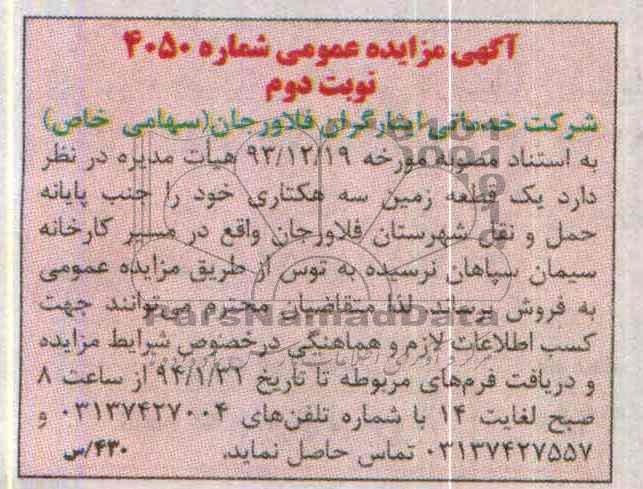 آگهی مزایده عمومی شماره ۴۰۵۰
نوبت دوم
شرکت خدماتی ایثارگران فلاورجان(سهامی خاص)
به استناد مصوبه مورخه ۹۳/۱۲/۱۹ هیأت مدیره در نظر
دارد یک قطعه زمین سه هکتاری خود را جنب پایانه
حمل و نقل شهرستان فلاورجان واقع در مسیر کارخانه
سیمان سپاهان نرسیده به توس از طریق مزایده عمومی
به فروش برساند. لذا متقاضیان محترم می‌توانند جهت
ParsNamadData
کسب اطلاعات لازم و هماهنگی درخصوص شرایط مزایده
و دریافت فرم‌های مربوطه تا تاریخ ۹۴/۱/۳۱ از ساعت ۸
صبح لغایت ۱۴ با شماره تلفن‌های ۰۳۱۳۷۴۲۷۰۰۴ و
۰۳۱۳۷۴۲۷۵۵۷ تماس حاصل نماید. ۴۳۰/س